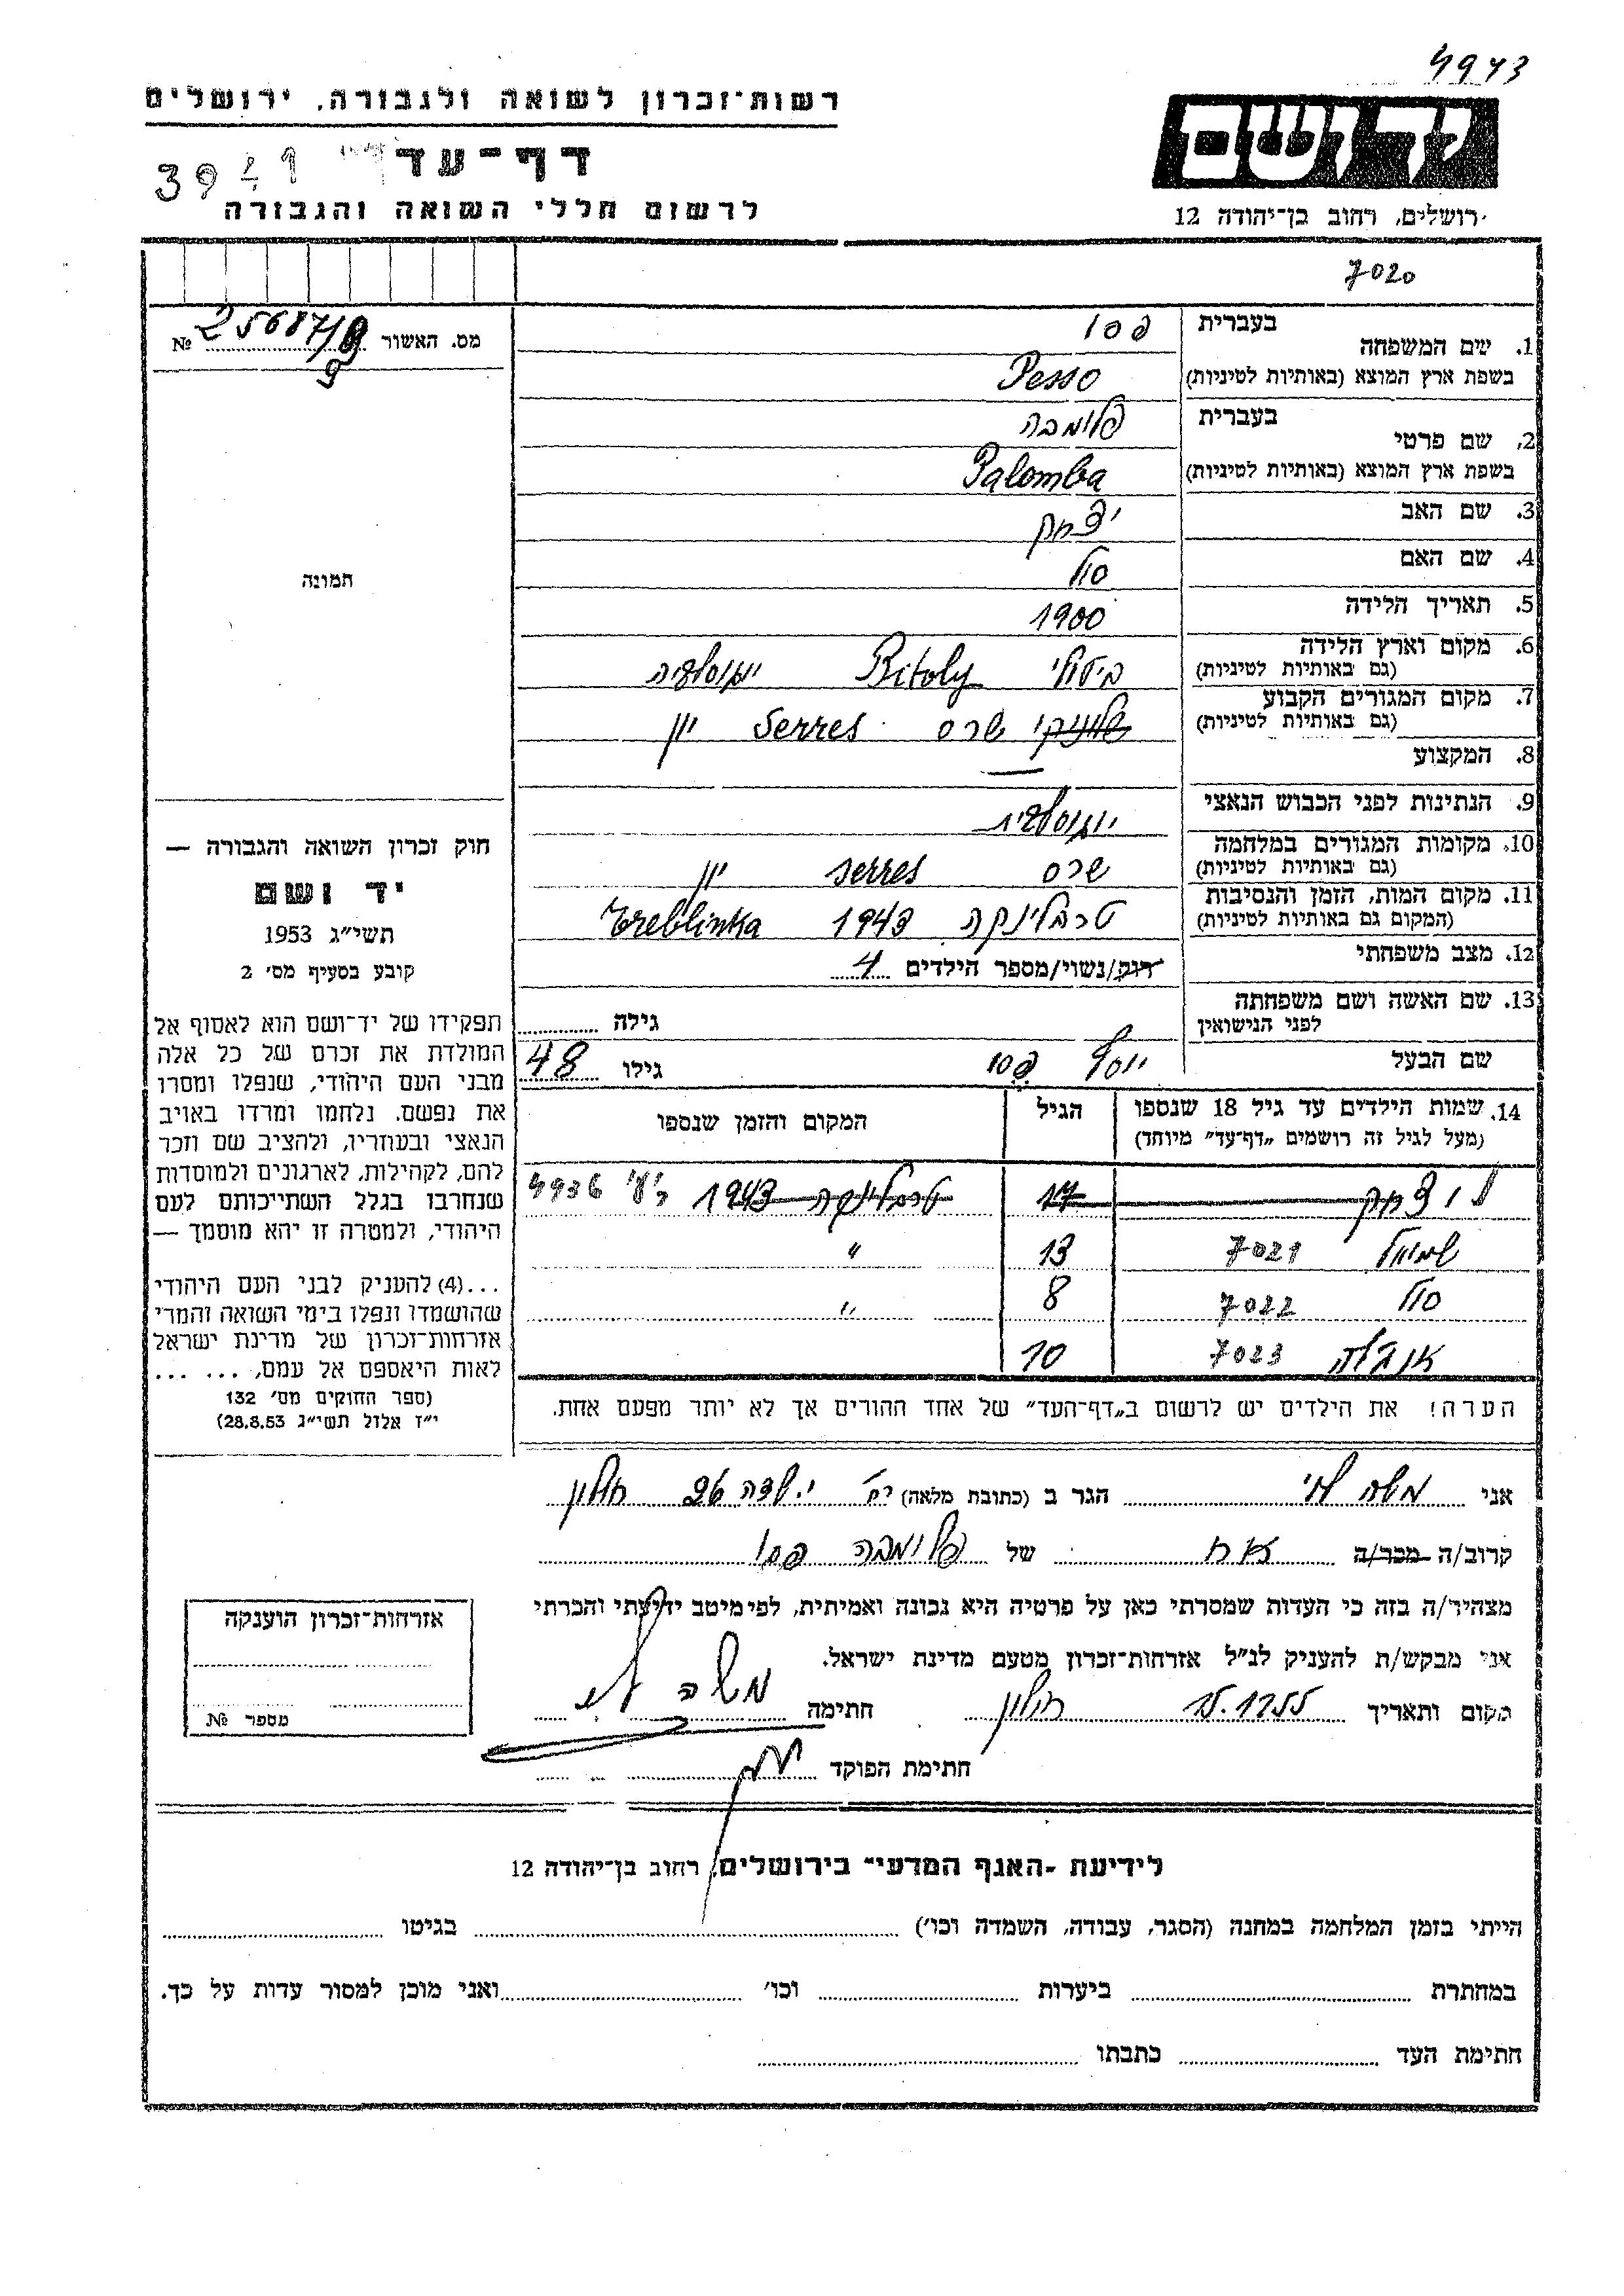 4943
רשות־זכרון לשואה ולגבורה, ירושלים
יד ושם
דף־עד
לרשום חללי השואה והגבורה
ירושלים, רחוב בן־יהודה 12
7020
מס. האשור № 25687/9
9
1. שם המשפחה בעברית פסו
בשפת ארץ המוצא (באותיות לטיניות) Pesso
2. שם פרטי בעברית פלומבה
בשפת ארץ המוצא (באותיות לטיניות) Palomba
3. שם האב יצחק
4. שם האם סול
5. תאריך הלידה 1900
6. מקום וארץ הלידה (גם באותיות לטיניות) ביטולי Bitoly יוגוסלביה
7. מקום המגורים הקבוע (גם באותיות לטיניות) שלוניקי שרס Serres יון
8. המקצוע —
9. הנתינות לפני הכבוש הנאצי יוגוסלבית
10. מקומות המגורים במלחמה (גם באותיות לטיניות) שרס Serres יון
11. מקום המות, הזמן והנסיבות (המקום גם באותיות לטיניות) טרבלינקה 1943 Treblinka
12. מצב משפחתי רווק/נשוי/מספר הילדים 4
13. שם האשה ושם משפחתה לפני הנישואין גילה
שם הבעל יוסף פסו גילו 48
14. שמות הילדים עד גיל 18 שנספו (מעל לגיל זה רושמים „דף־עד״ מיוחד) הגיל המקום והזמן שנספו
יצחק 17 טרבלינקה 1943 4936
שמואל 7021 13 "
סול 7022 8 "
אנג'לה 7023 10
הערה! את הילדים יש לרשום ב„דף־העד״ של אחד ההורים אך לא יותר מפעם אחת.
תמונה
חוק זכרון השואה והגבורה —
יד ושם
תשי״ג 1953
קובע בסעיף מס׳ 2
תפקידו של יד־ושם הוא לאסוף אל
המולדת את זכרם של כל אלה
מבני העם היהודי, שנפלו ומסרו
את נפשם. נלחמו ומרדו באויב
הנאצי ובעוזריו, ולהציב שם וזכר
להם, לקהילות, לארגונים ולמוסדות
שנחרבו בגלל השתייכותם לעם
היהודי, ולמטרה זו יהא מוסמך —
...(4) להעניק לבני העם היהודי
שהושמדו ונפלו בימי השואה והמרי
אזרחות־זכרון של מדינת ישראל
לאות היאספם אל עמם, ... ...
(ספר החוקים מס׳ 132
י״ז אלול תשי״ג 28.8.53)
אני משה לוי הגר ב (כתובת מלאה) שדה 26 חולון
קרוב/ה מכר/ה אח של פלומבה פסו
מצהיר/ה בזה כי העדות שמסרתי כאן על פרטיה היא נכונה ואמיתית, לפי מיטב ידיעתי והכרתי
אני מבקש/ת להעניק לנ״ל אזרחות־זכרון מטעם מדינת ישראל.
מקום ותאריך חולון חתימה משה לוי
חתימת הפוקד
אזרחות־זכרון הוענקה
מספר №
לידיעת -האגף המדעי״ בירושלים, רחוב בן־יהודה 12
הייתי בזמן המלחמה במחנה (הסגר, עבודה, השמדה וכו׳) בגיטו
במחתרת ביערות וכו׳ ואני מוכן למסור עדות על כך.
חתימת העד כתבתו